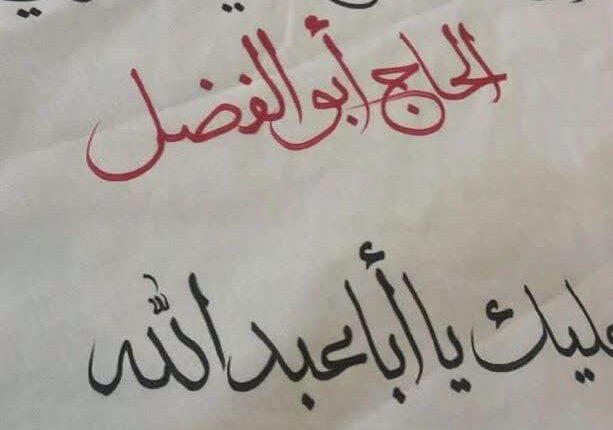 الحاج أبو الفضل
عليك يا أبا عبد الله